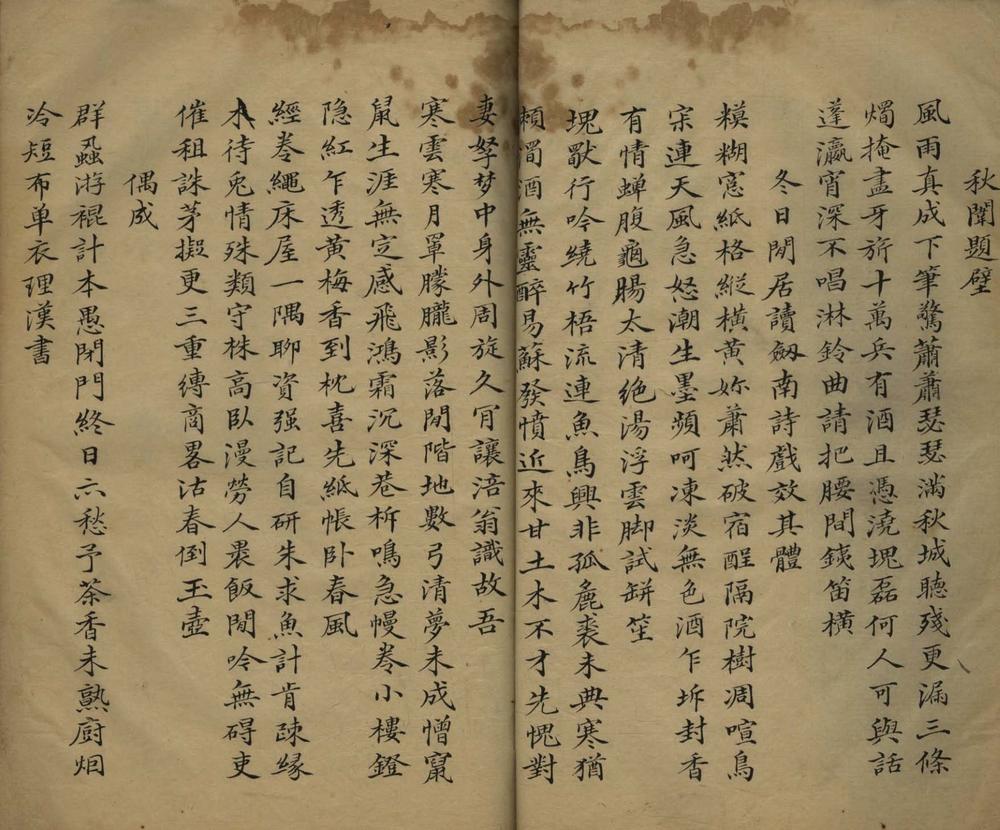 秋闈題壁
風雨真成下筆驚蕭蕭瑟瑟滿秋城聽殘更漏三條
燭掩盡牙旂十萬兵有酒且憑澆塊磊何人可與話
蓬瀛宵深不唱淋鈴曲請把腰間鐵笛橫
冬日閒居讀劔南詩戲效其體
糢糊窓紙格縱橫黃妳蕭然破宿酲隔院樹凋喧鳥
宋連天風急怒潮生墨頻呵凍淡無色酒乍坼封香
有情蟬腹龜腸太清絕湯浮雲脚試缾笙
塊獸行吟繞竹梧流連魚鳥興非孤麁裘未典寒猶
賴濁酒無靈醉易蘇發憤近來甘土木不才先愧對
妻孥梦中身外周旋久肎讓涪翁識故吾
寒雲寒月罩朦朧影落閒階地數弓清夢未成憎窺
鼠生涯無定感飛鴻霜沉深巷柝鳴急幔卷小樓鐙
隐紅乍透黃梅香到枕喜先紙帳卧春風
經卷繩床屋一隅聊資强記自研朱求魚計肯疎緣
木待兎情殊類守株高臥漫勞人裹飯閒吟無碍吏
催租誅茅擬更三重縳商畧沽春倒玉壺
偶成
群蝨游裩計本愚閉門終日亦愁予茶香未熟廚烟
冷短布单衣理漢書